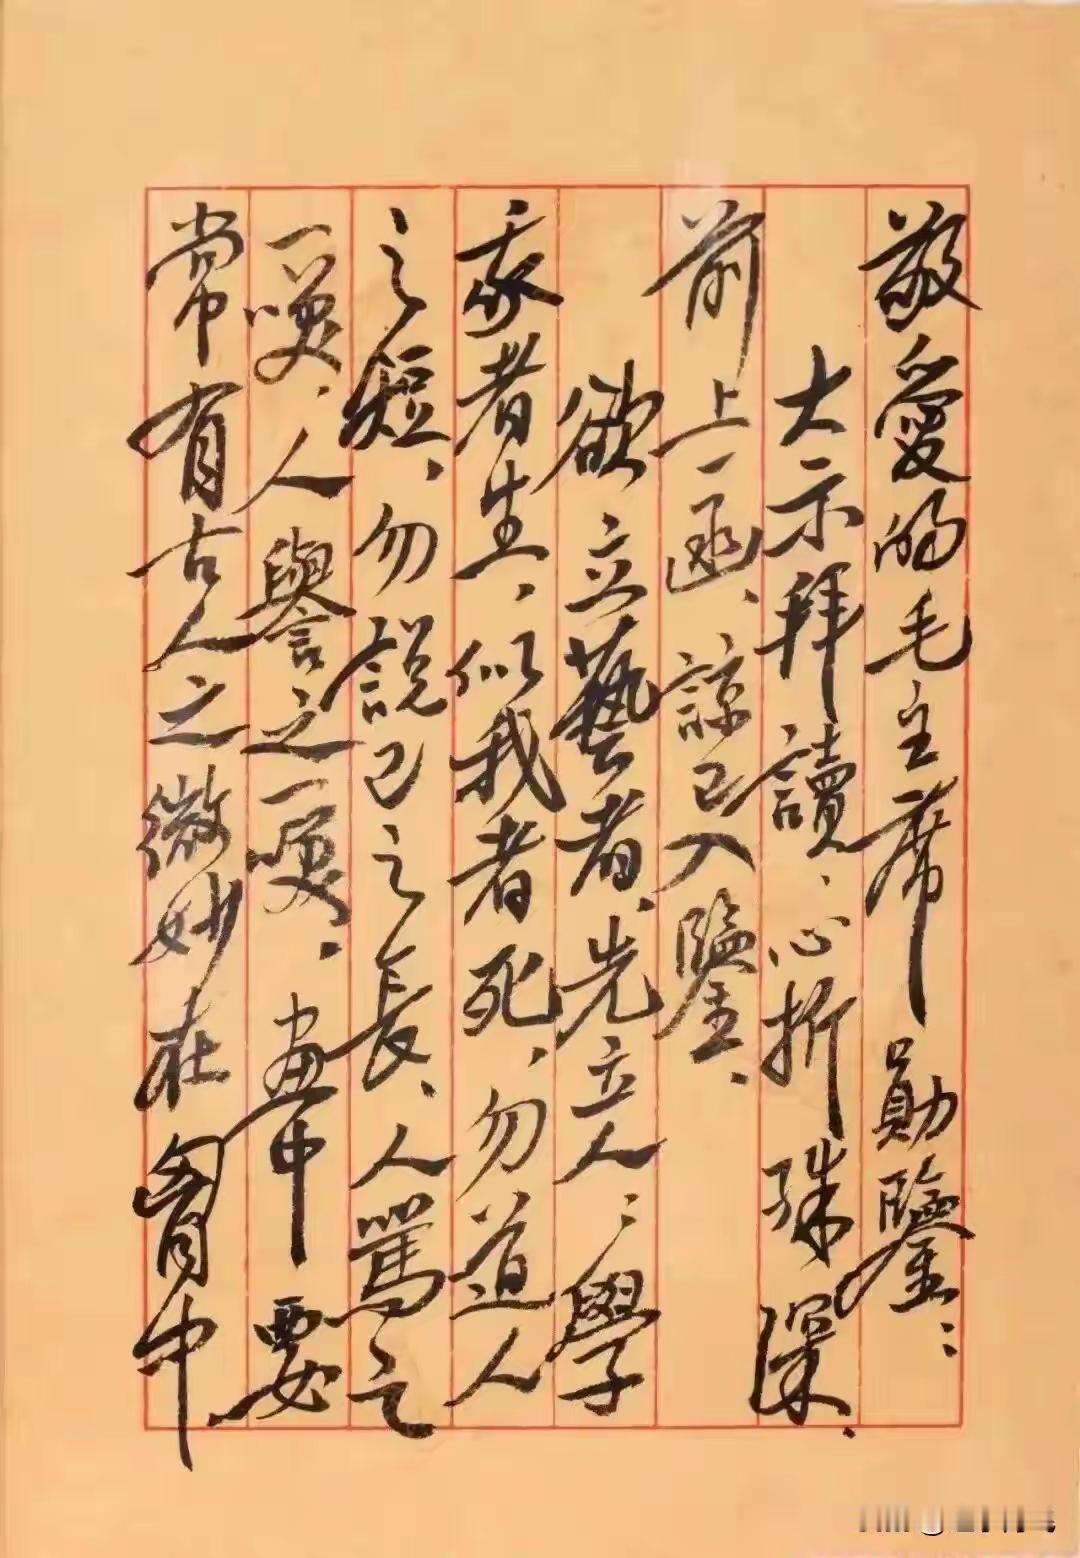 敬愛的毛主席勛鑒：
大示拜讀、心折殊深、
前上一函、諒已入鑒、
欲立藝者、先立人、學
我者生、似我者死、勿道人
之短、勿說己之長、人罵之
一笑、人譽之一笑、畫中要
常有古人之微妙在胸中